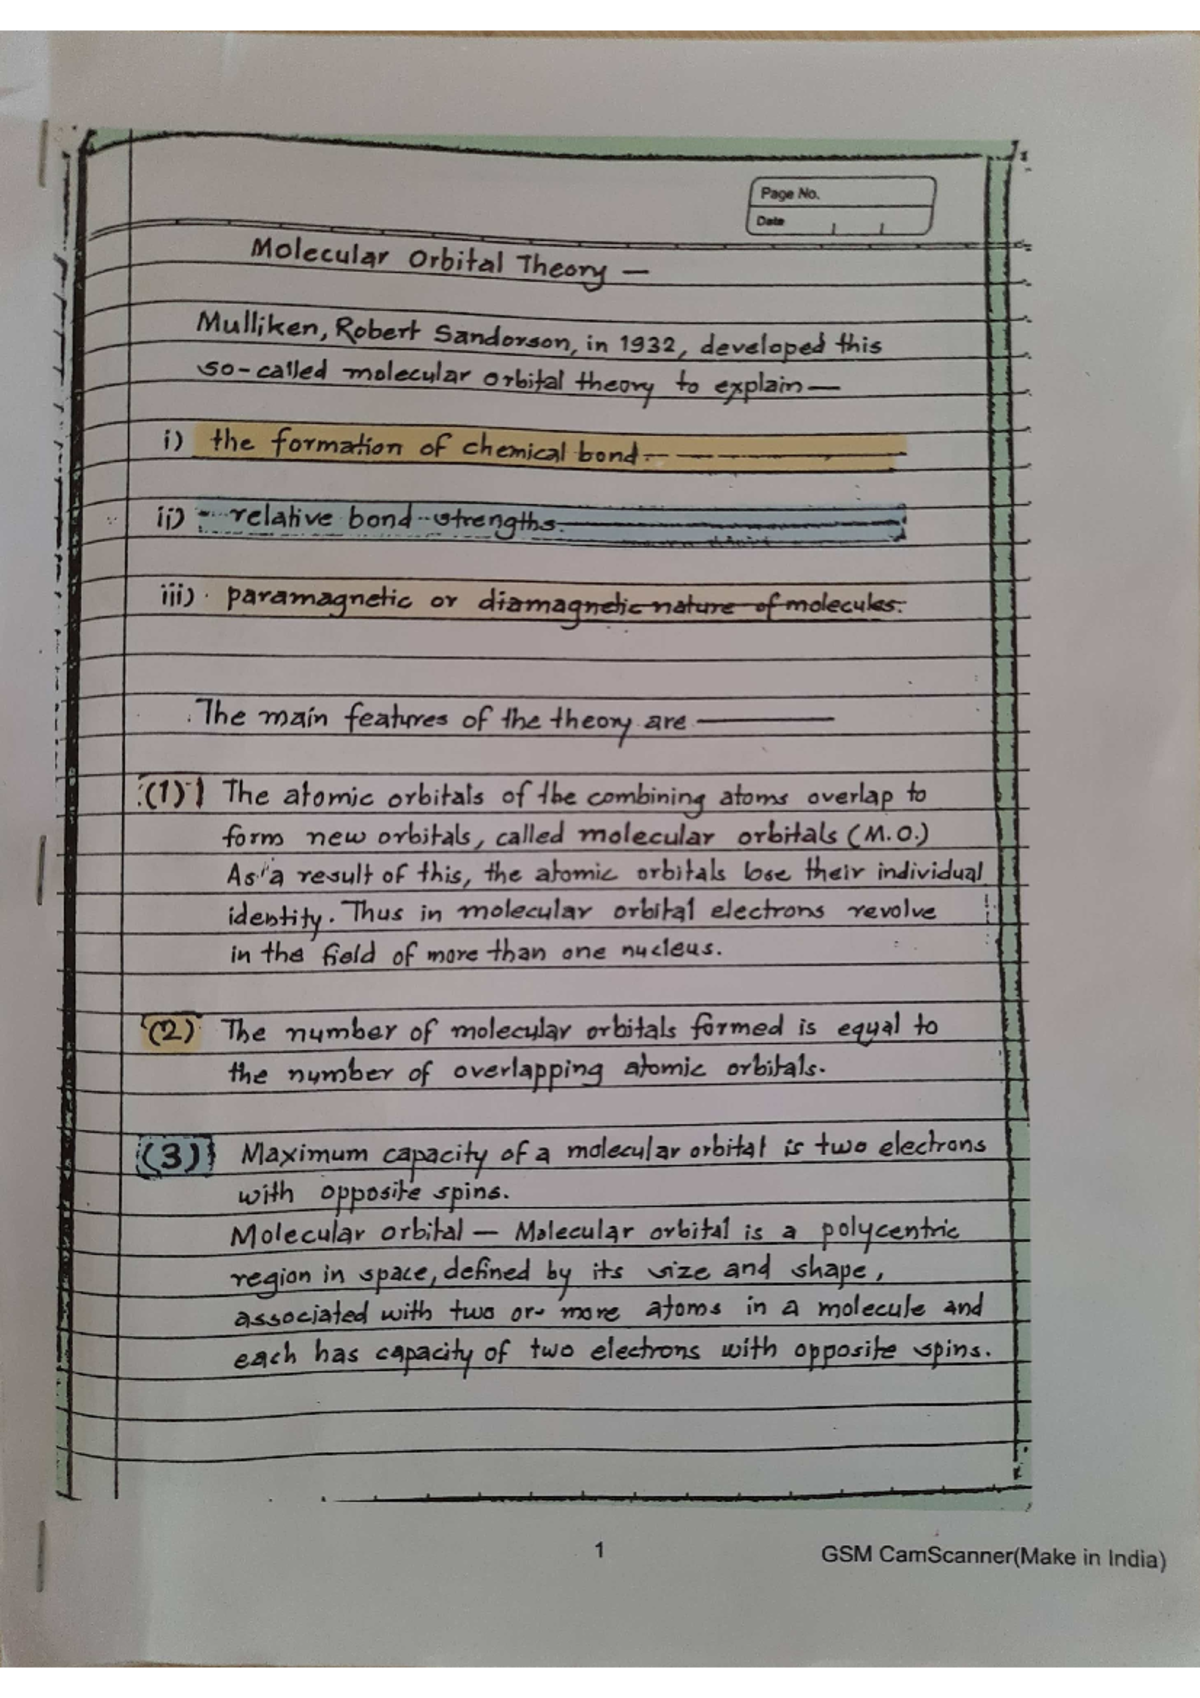 Page No.
Date
Molecular Orbital Theory —
Mulliken, Robert Sanderson, in 1932, developed this
so-called molecular orbital theory to explain —
i) the formation of chemical bond.
ii) relative bond strengths.
iii) paramagnetic or diamagnetic nature of molecules.
The main features of the theory are —
(1) The atomic orbitals of the combining atoms overlap to
form new orbitals, called molecular orbitals (M.O.)
As a result of this, the atomic orbitals lose their individual
identity. Thus in molecular orbital electrons revolve
in the field of more than one nucleus.
(2) The number of molecular orbitals formed is equal to
the number of overlapping atomic orbitals.
(3) Maximum capacity of a molecular orbital is two electrons
with opposite spins.
Molecular orbital — Molecular orbital is a polycentric
region in space, defined by its size and shape,
associated with two or more atoms in a molecule and
each has capacity of two electrons with opposite spins.
1
GSM CamScanner(Make in India)